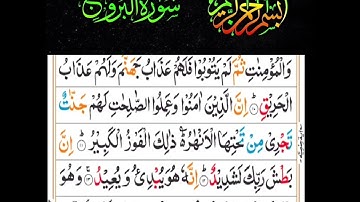 سورة البروج بسم الله الرحمن الرحيم
وَالْمُؤْمِنٰتِ ثُمَّ لَمْ يَتُوْبُوْا فَلَهُمْ عَذَابُ جَهَنَّمَ وَلَهُمْ عَذَابُ
الْحَرِيْقِ ؕ اِنَّ الَّذِيْنَ اٰمَنُوْا وَعَمِلُوا الصّٰلِحٰتِ لَهُمْ جَنّٰتٌ
تَجْرِىْ مِنْ تَحْتِهَا الْاَنْهٰرُ ؕ ذٰلِكَ الْفَوْزُ الْكَبِيْرُ ؕ اِنَّ
بَطْشَ رَبِّكَ لَشَدِيْدٌ ؕ اِنَّهٗ هُوَ يُبْدِئُ وَ يُعِيْدُ ۚ وَهُوَ